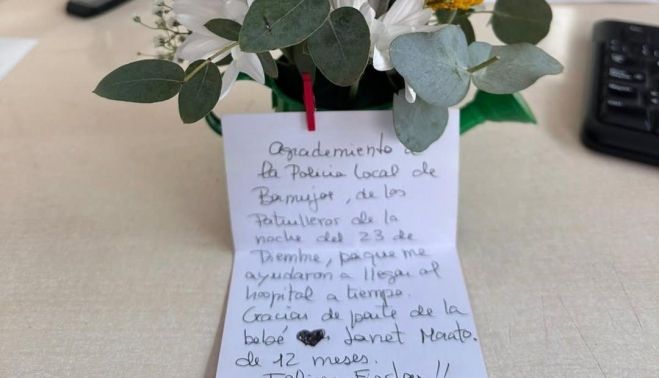 Agrademiento a
la Policia Local de
Bormujos, de los
Patrulleros de la
noche del 23 de
Diembre, paque me
ayudaron a llegar al
hospital a tiempo.
Gracias de parte de la
bebé Janet
de 12 meses.